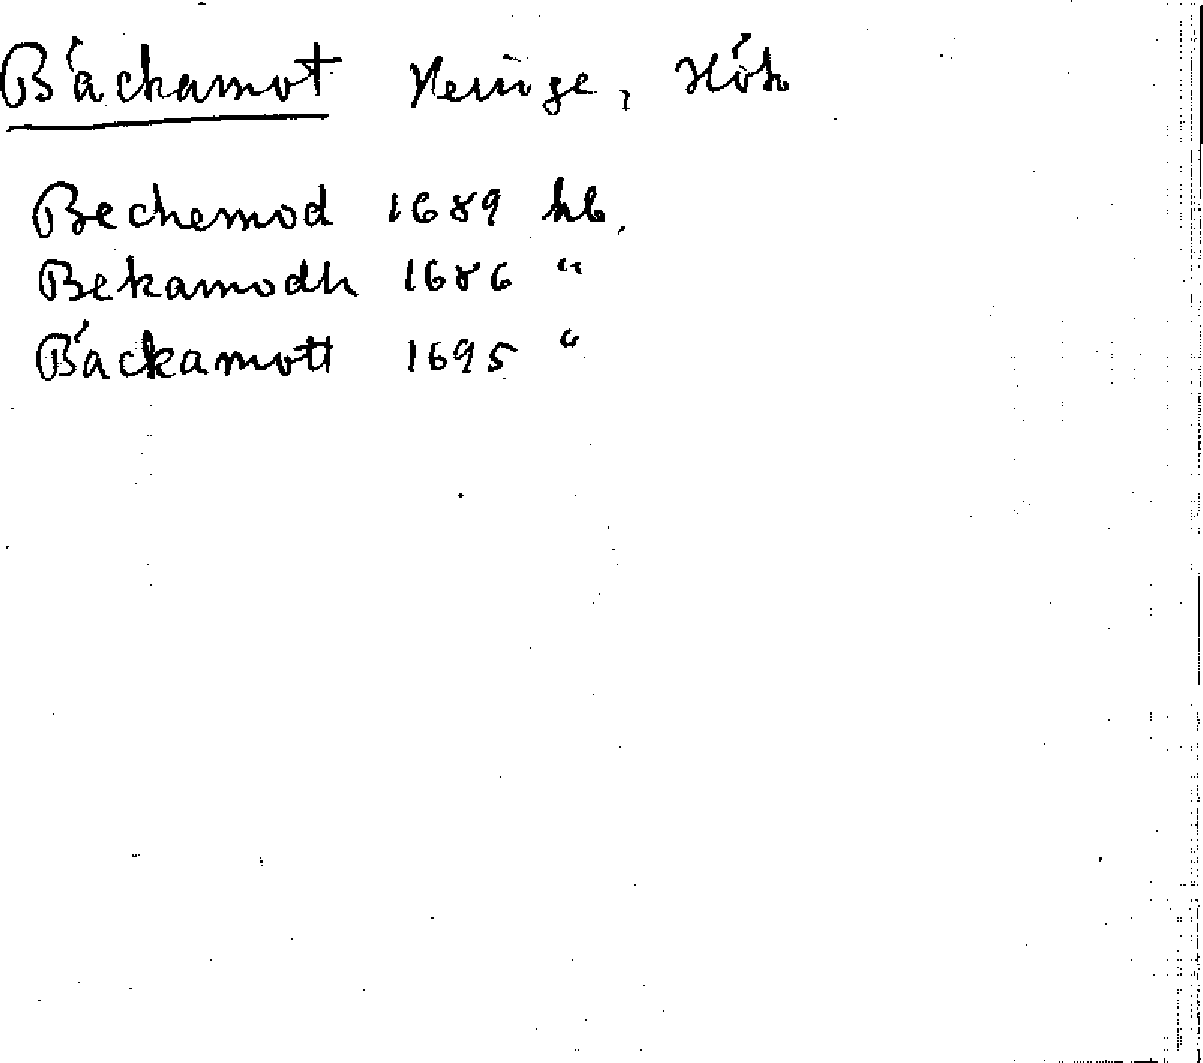 Bäckamot Veinge, Hök
Bechemod 1689 kb.
Bekamodh 1686 "
Bäckamott 1695 "